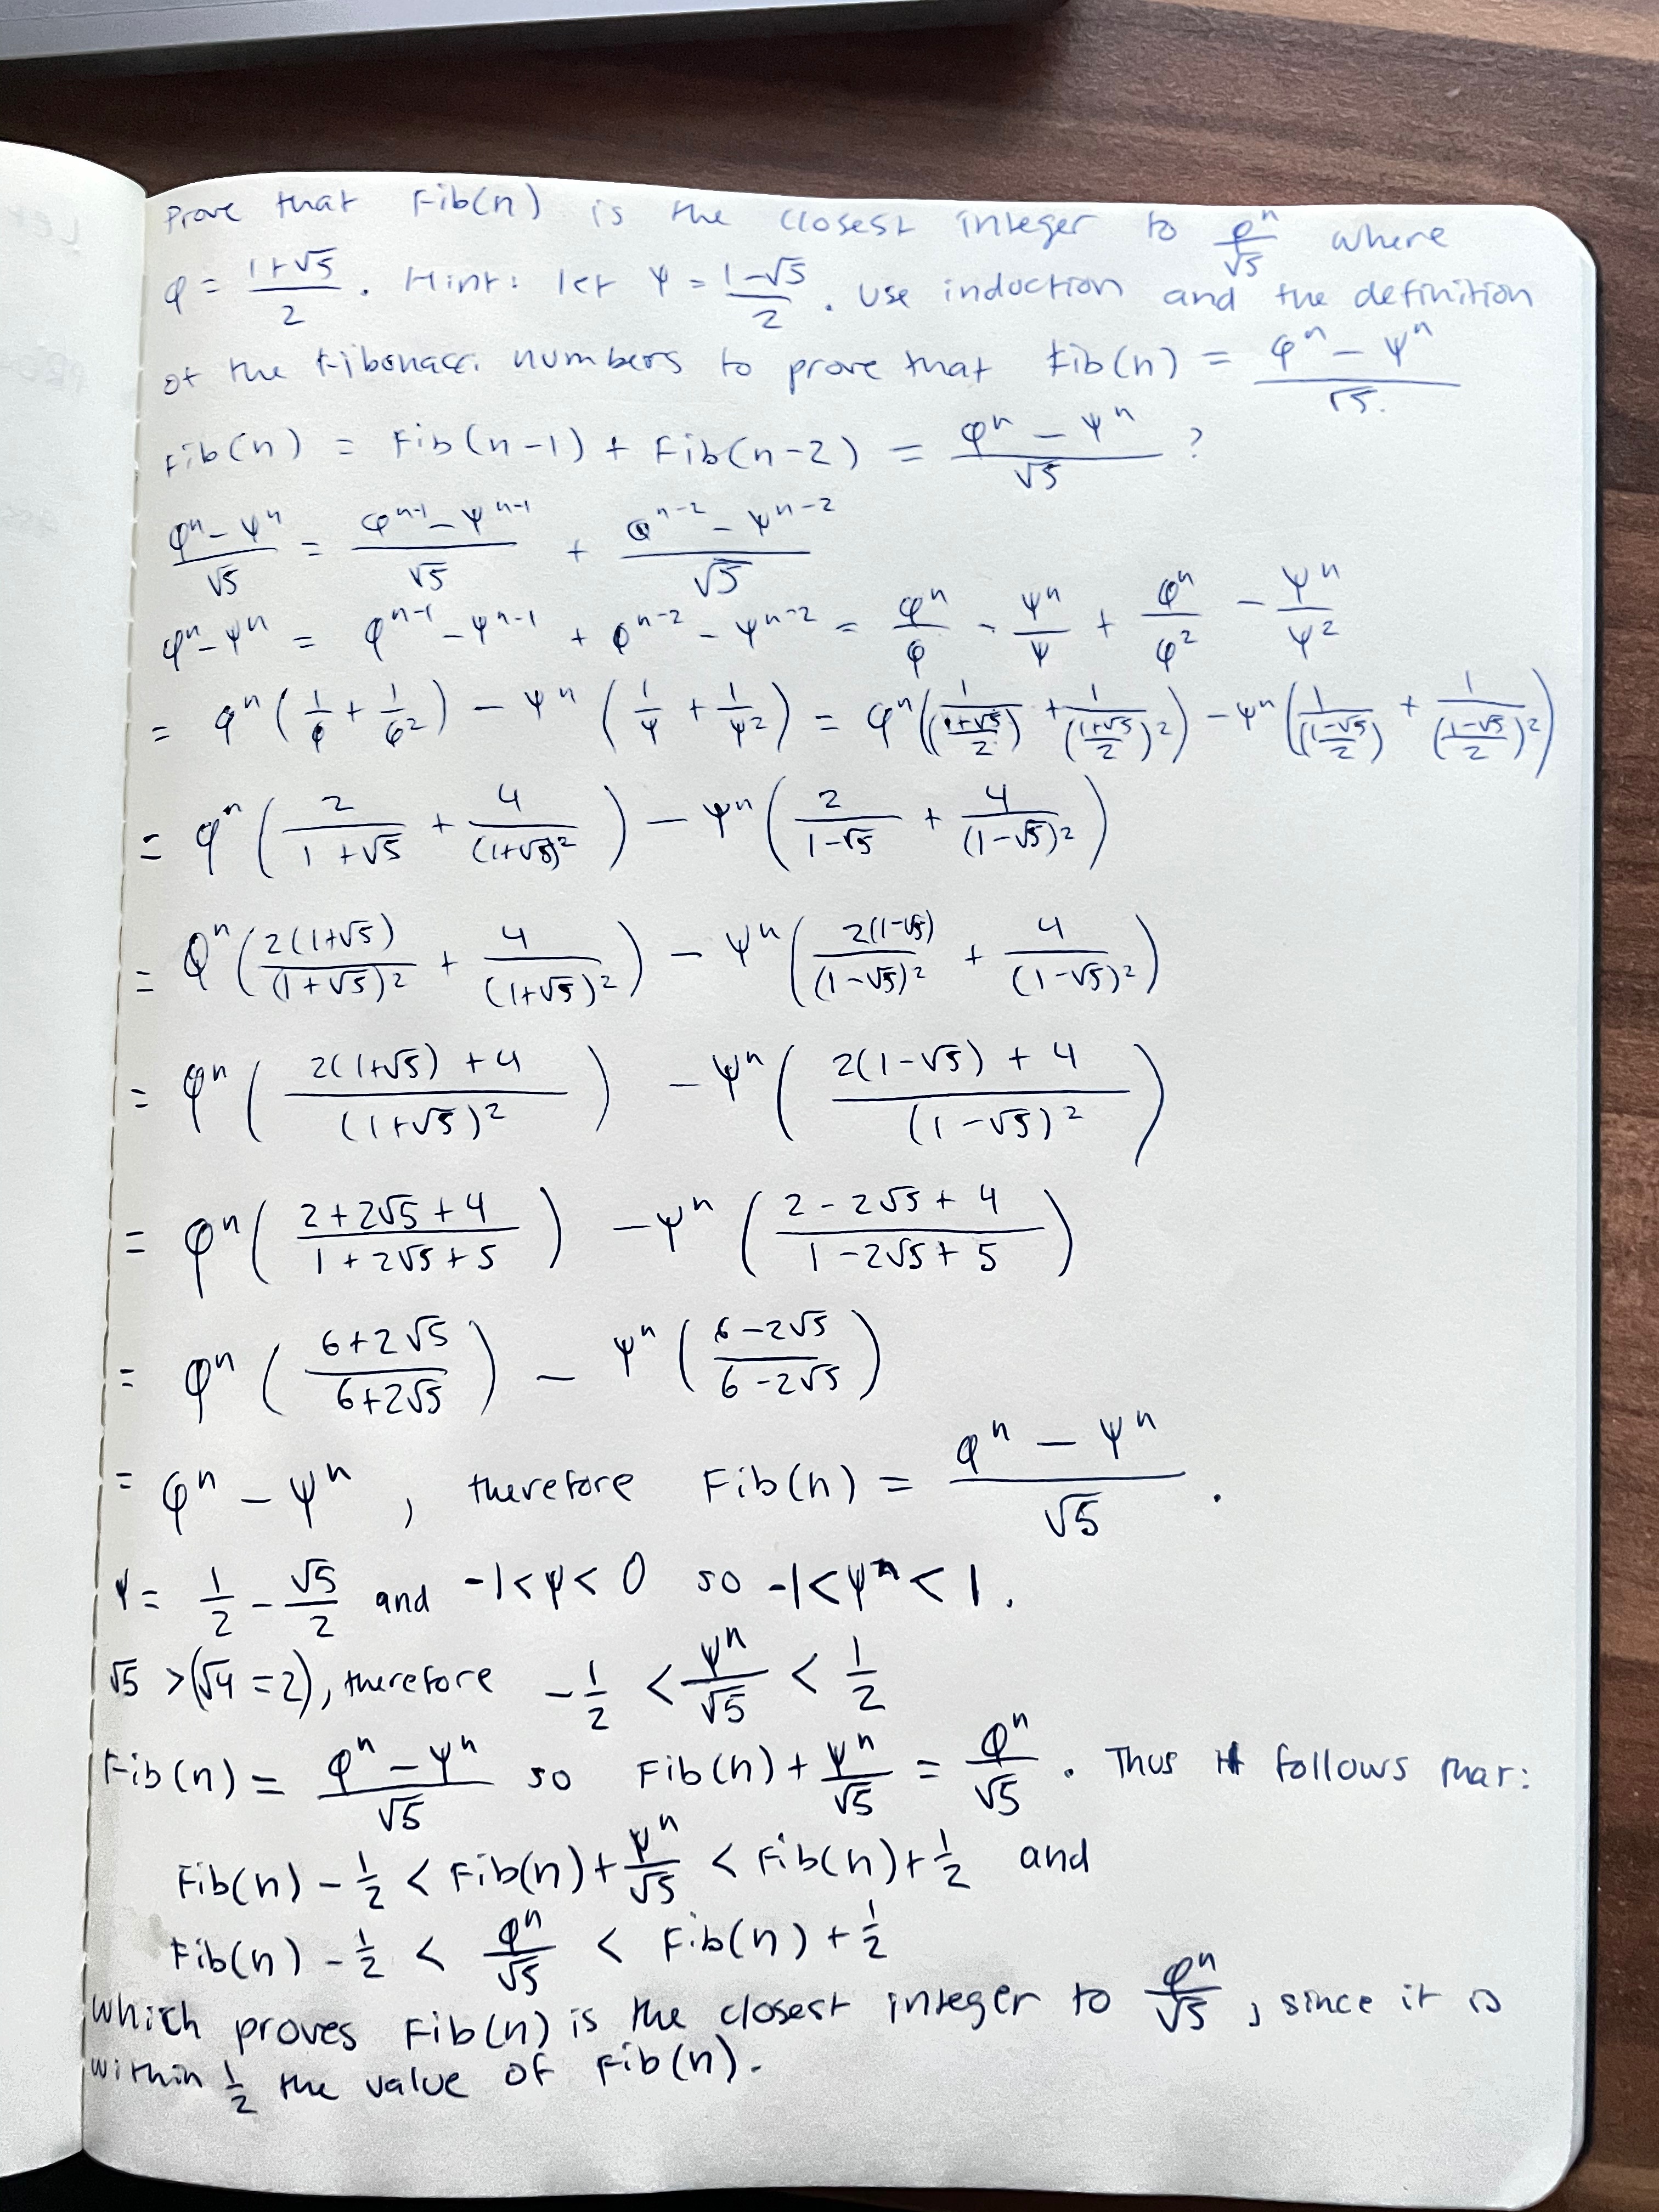 Prove that Fib(n) is the closest integer to φⁿ/√5 where
φ = (1+√5)/2. Hint: let ψ = (1-√5)/2. Use induction and the definition
of the Fibonacci numbers to prove that Fib(n) = (φⁿ - ψⁿ)/√5.
Fib(n) = Fib(n-1) + Fib(n-2) = (φⁿ - ψⁿ)/√5 ?
(φⁿ - ψⁿ)/√5 = (φⁿ⁻¹ - ψⁿ⁻¹)/√5 + (φⁿ⁻² - ψⁿ⁻²)/√5
φⁿ - ψⁿ = φⁿ⁻¹ - ψⁿ⁻¹ + φⁿ⁻² - ψⁿ⁻² = φⁿ/φ - ψⁿ/ψ + φⁿ/φ² - ψⁿ/ψ²
= φⁿ(1/φ + 1/φ²) - ψⁿ(1/ψ + 1/ψ²) = φⁿ(1/((1+√5)/2) + 1/((1+√5)/2)²) - ψⁿ(1/((1-√5)/2) + 1/((1-√5)/2)²)
= φⁿ(2/(1+√5) + 4/(1+√5)²) - ψⁿ(2/(1-√5) + 4/(1-√5)²)
= φⁿ(2(1+√5)/(1+√5)² + 4/(1+√5)²) - ψⁿ(2(1-√5)/(1-√5)² + 4/(1-√5)²)
= φⁿ((2(1+√5) + 4)/(1+√5)²) - ψⁿ((2(1-√5) + 4)/(1-√5)²)
= φⁿ((2+2√5+4)/(1+2√5+5)) - ψⁿ((2-2√5+4)/(1-2√5+5))
= φⁿ((6+2√5)/(6+2√5)) - ψⁿ((6-2√5)/(6-2√5))
= φⁿ - ψⁿ, therefore Fib(n) = (φⁿ - ψⁿ)/√5.
ψ = 1/2 - √5/2 and -1<ψ<0 so -1<ψⁿ<1.
√5 >(√4=2), therefore -1/2 < ψⁿ/√5 < 1/2
Fib(n) = (φⁿ - ψⁿ)/√5 so Fib(n) + ψⁿ/√5 = φⁿ/√5. Thus it follows that:
Fib(n) - 1/2 < Fib(n) + ψⁿ/√5 < Fib(n) + 1/2 and
Fib(n) - 1/2 < φⁿ/√5 < Fib(n) + 1/2
which proves Fib(n) is the closest integer to φⁿ/√5, since it is
within 1/2 the value of Fib(n).